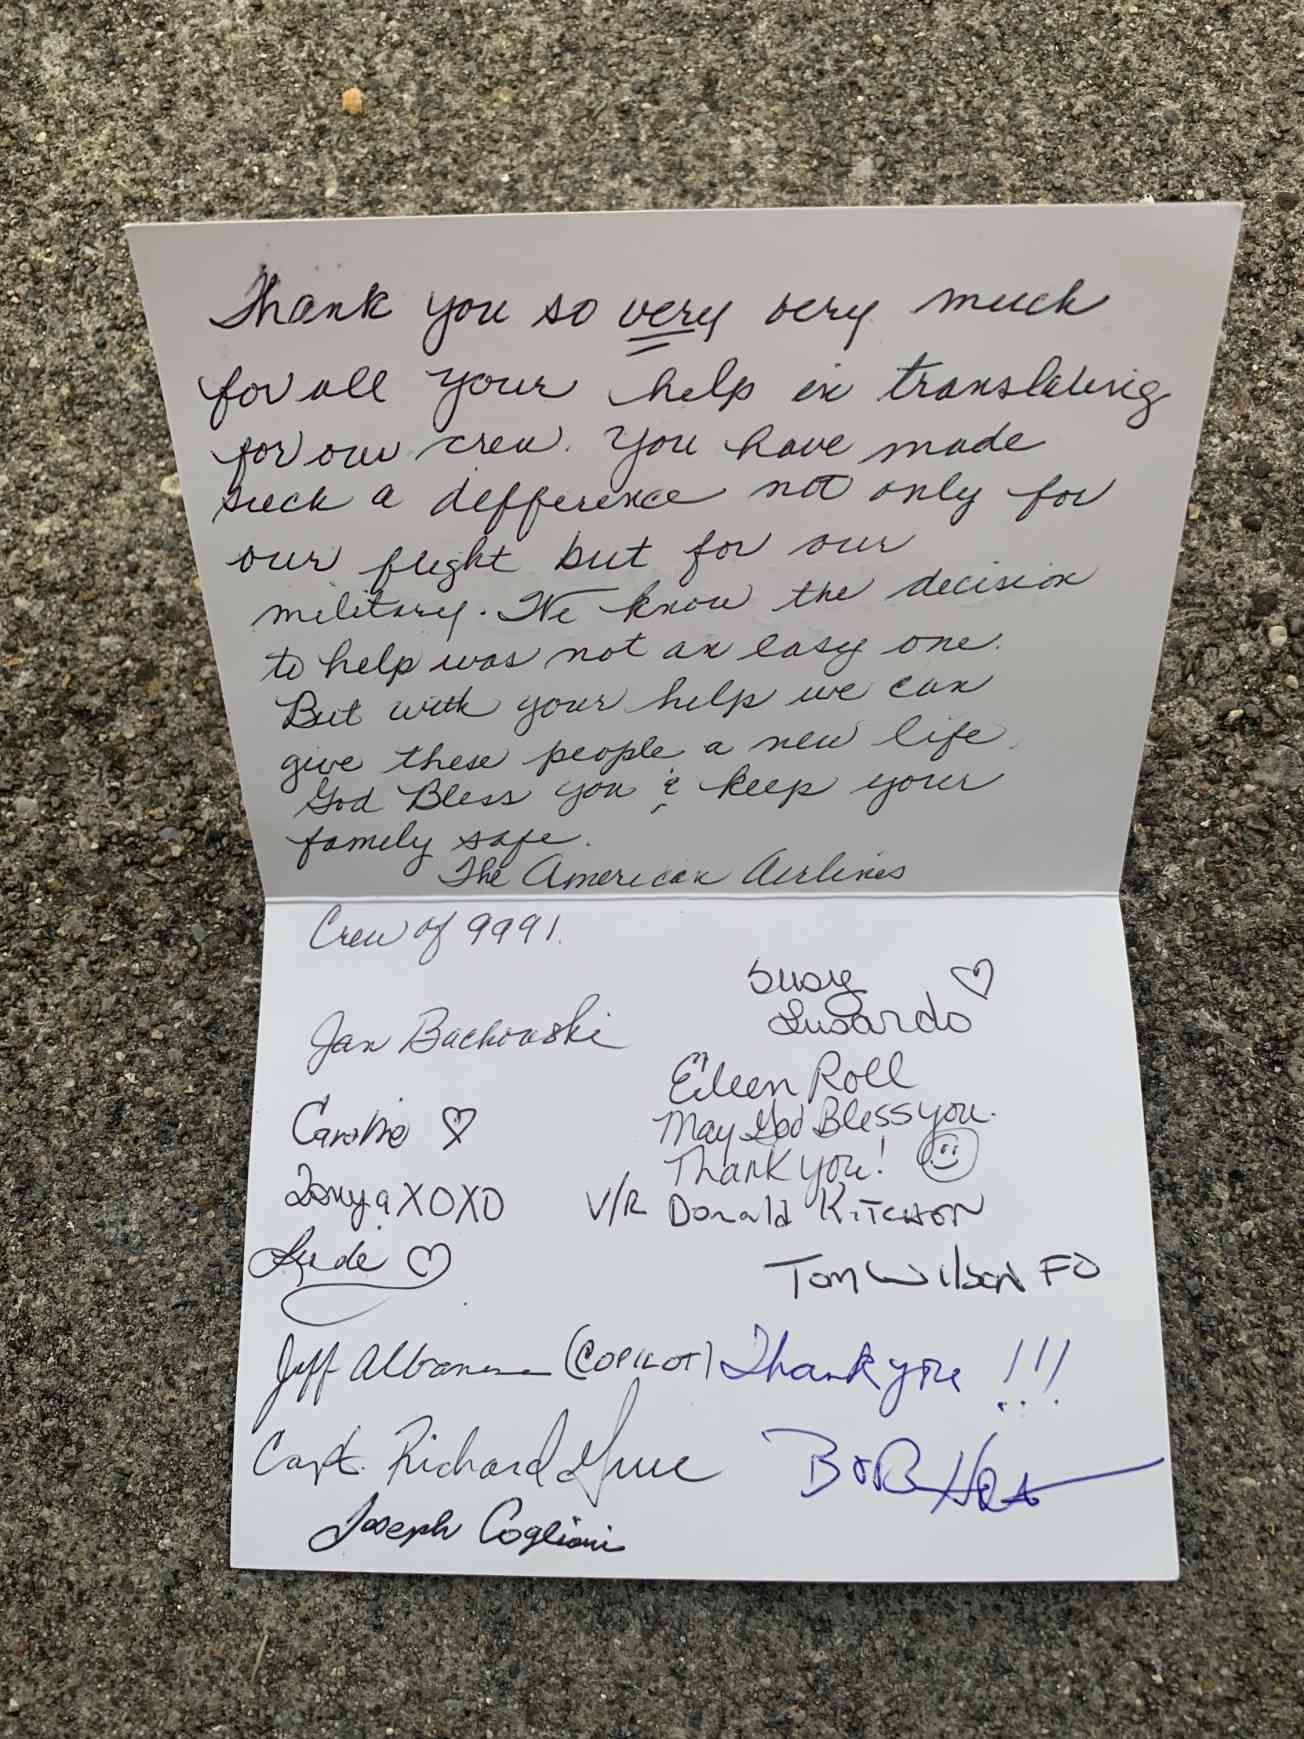 Thank you so very very much
for all your help in translating
for our crew. You have made
such a difference not only for
our flight but for our
military. We know the decision
to help was not an easy one.
But with your help we can
give these people a new life.
God Bless you & keep your
family safe.
The American Airlines
Crew of 9991.
Susy
Lusardo
Jan Bachowski
Eileen Roll
May God Bless you.
Thank you!
Caroline
Tonya XOXO
V/R Donald Kitchon
Tom Wilson FO
Jeff (COPILOT)
Thank you !!!
Capt. Richard
Bob
Joseph Coglioni